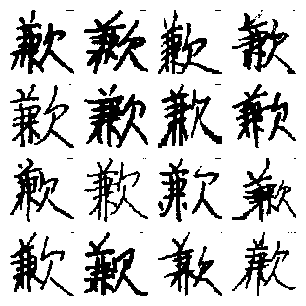 歉歉歉歉
歉歉歉歉
歉歉歉歉
歉歉歉歉